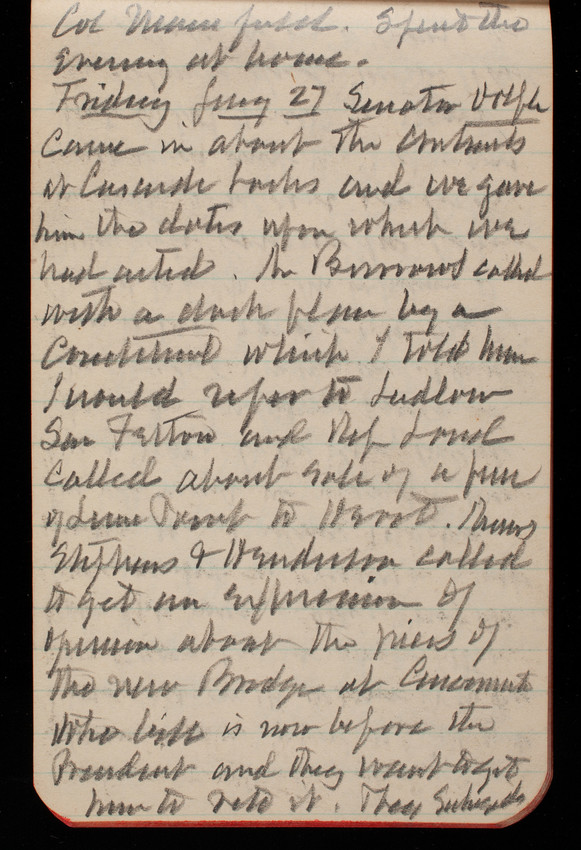 Col Mann [...]. Spent the
Evening at home.
Friday Jany 27 Senator Dolph
came in about the contracts
at Cascade Locks and we gave
him the dates upon which we
had acted. Mr Burrows called
with a dock plan by a
Constituent which I told him
I would refer to Ludlow
Sen Felton and Rep Loud
called about sale of a piece
of Lime Point to Govt.
Stephens & Henderson called
to get an expression of
opinion about the piers of
the new Bridge at Cincinnati
the bill is now before the
President and they want to get
him to veto it. They